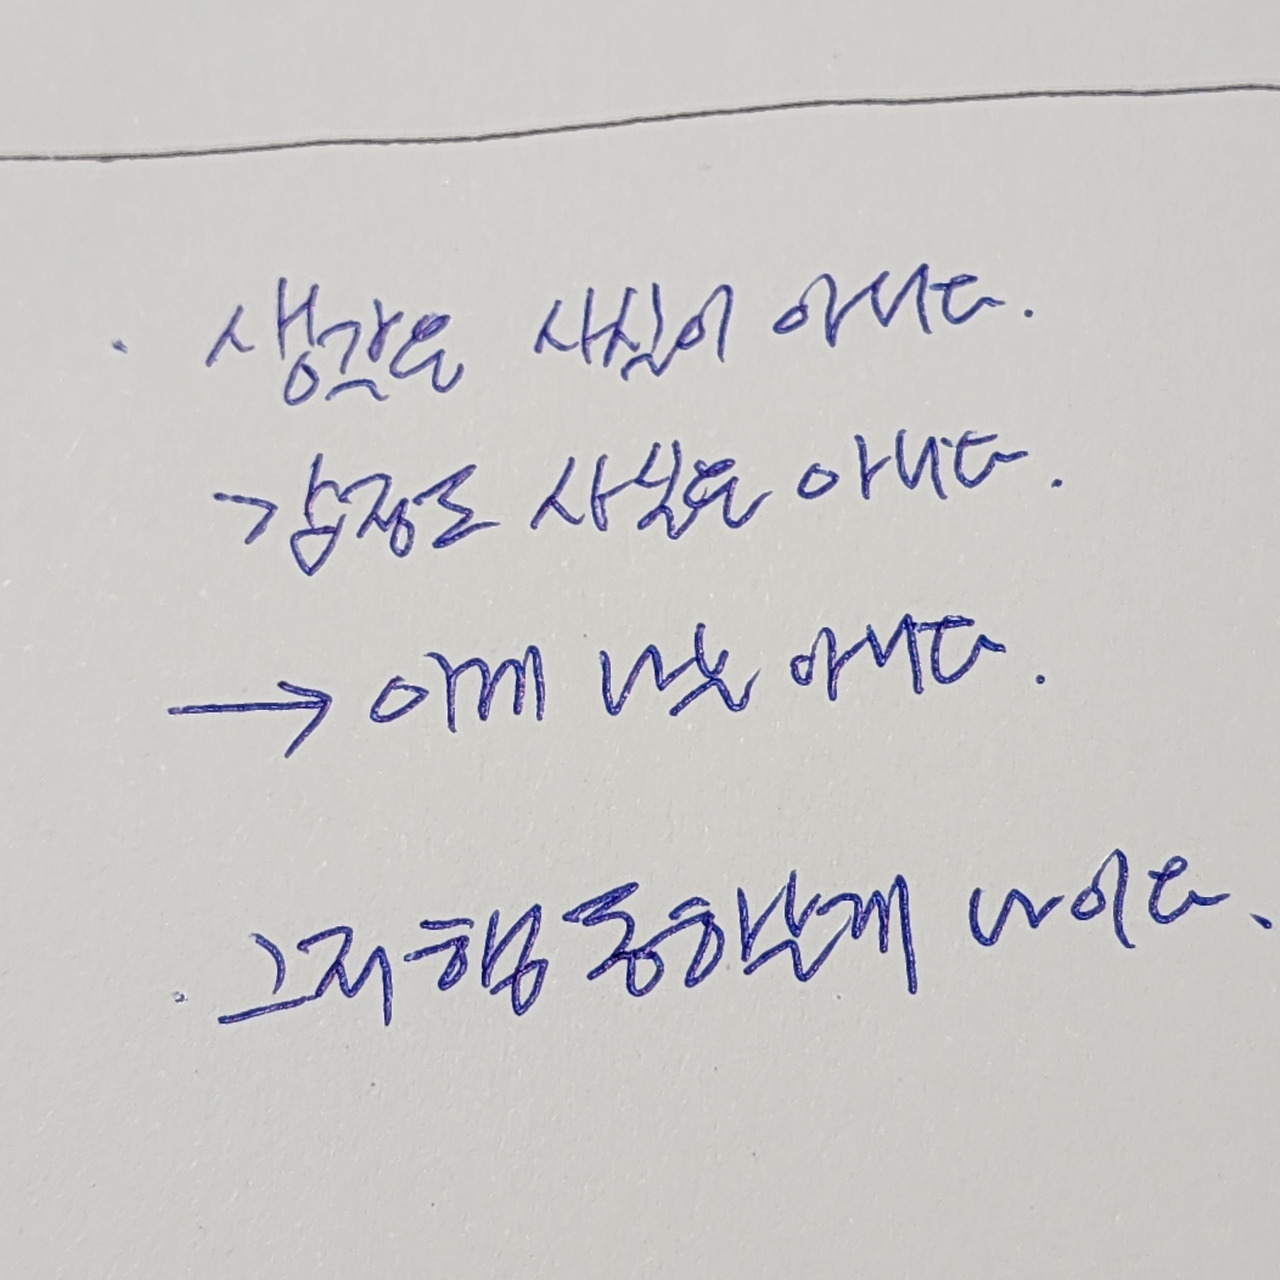 · 생각은 사실이 아니다.
> 감정도 사실은 아니다.
→ 이게 나는 아니다.
· 그저 행동하는게 나이다.